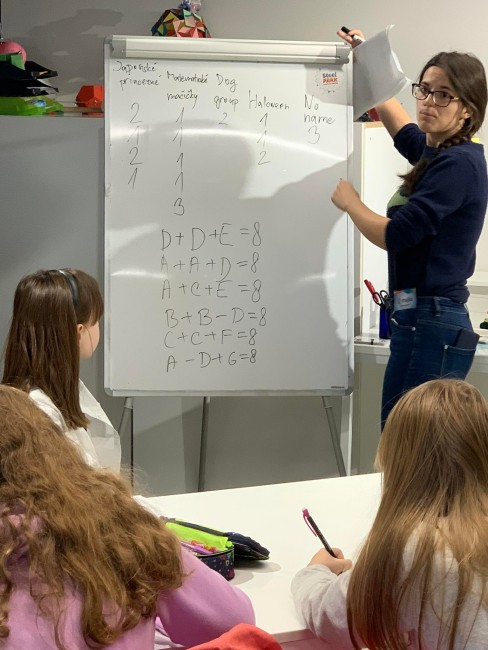 Japonské
princezné
2
1
2
1
Matematické
mačičky
1
1
1
1
3
Dog
group
2
Haloween
1
1
2
No
name
3
D+D+E=8
A+A+D=8
A+C+E=8
B+B-D=8
C+C+F=8
A-D+G=8